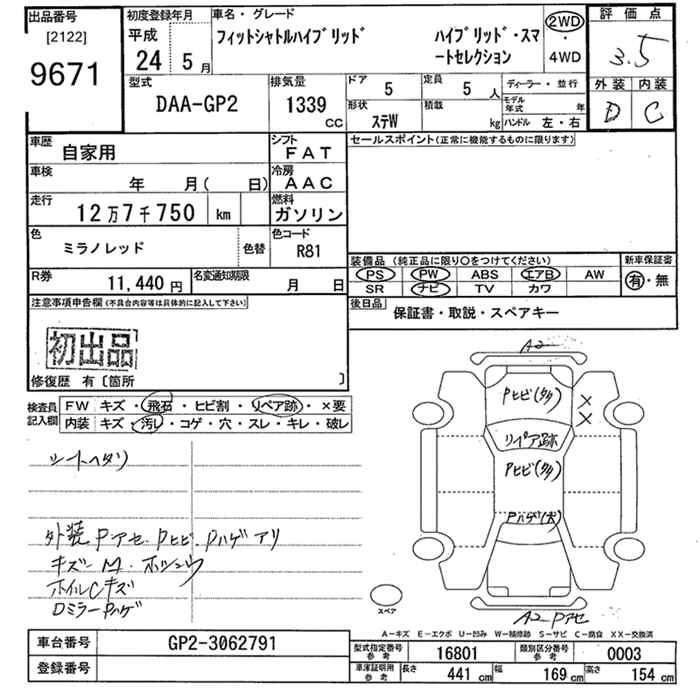 出品番号 初度登録年月 車名・グレード 評価点
[2122] 平成 フィットシャトルハイブリッド ハイブリッド・スマ 2WD
9671 24 5月 ートセレクション ・4WD 3.5
型式 排気量 ドア 5 定員 5人 ディーラー・並行 外装 内装
DAA-GP2 1339cc 形状 ステW 積載 kg モデル年式 年 ハンドル 左・右 D C
車歴 自家用 シフト FAT セールスポイント(正常に機能するものに限ります)
車検 年 月( 日) 冷房 AAC
走行 12万7千750 km 燃料 ガソリン
色 ミラノレッド 色替 色コード R81
装備品(純正品に限り○をつけてください) 新車保証書
PS PW ABS エアB AW 有・無
R券 11,440円 名変通知期限 月 日 SR ナビ TV カワ
注意事項申告欄(不具合内容等は具体的に記入して下さい) 後日品 保証書・取説・スペアキー
初出品
修復歴 有〔箇所 〕
検査員記入欄 FW キズ・飛石・ヒビ割・リペア跡・×要
内装 キズ・汚レ・コゲ・穴・スレ・キレ・破レ
シートヘタリ
外装 Pアセ・Pヒビ・Pハゲアリ
キズ
ホイルCキズ
DミラーPハゲ
A2
Pヒビ(多)
×
×
リペア跡
Pヒビ(多)
Pハゲ(大)
A2・Pアセ
スペア
A-キズ E-エクボ U-凹み W-補修跡 S-サビ C-腐食 XX-交換済
車台番号 GP2-3062791 型式指定番号 参考 16801 類別区分番号 参考 0003
登録番号 車庫証明用 参考 長さ 441cm 幅 169cm 高さ 154cm